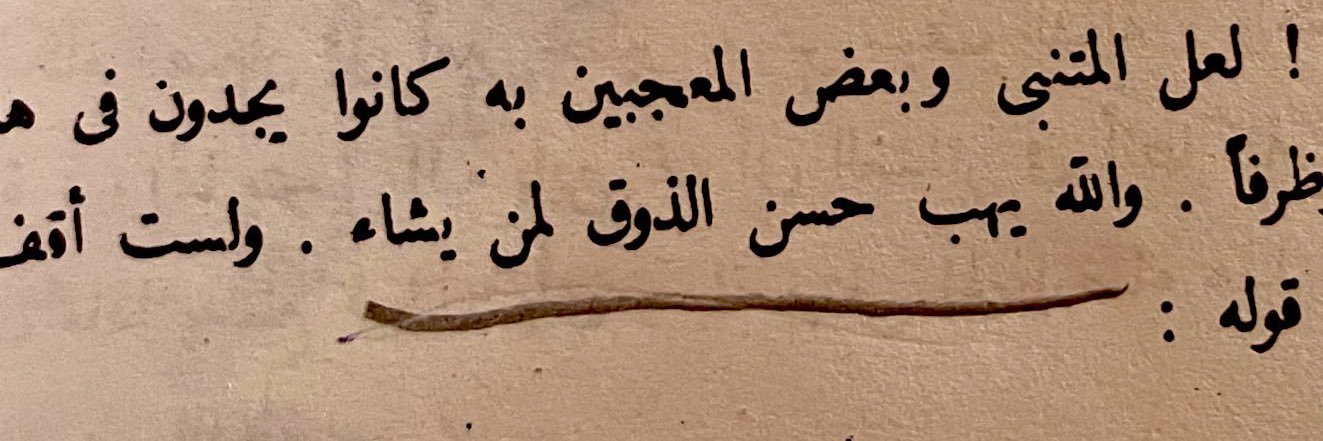 ! لعل المتنبى وبعض المعجبين به كانوا يجدون فى
ظرفاً . والله يهب حسن الذوق لمن يشاء . ولست أقف
قوله :